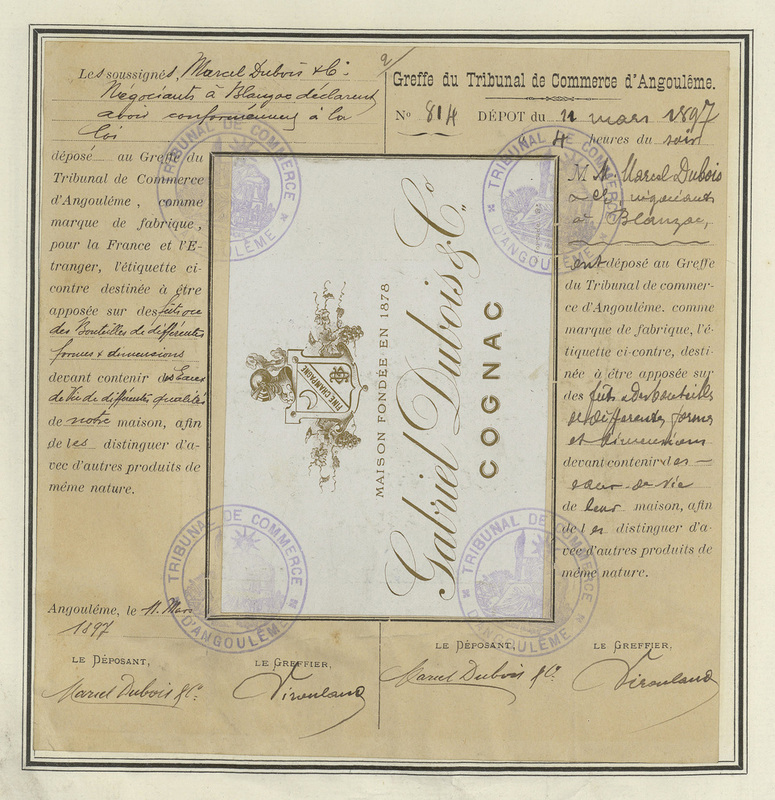 2/
Les soussignés, Marcel Dubois & Cie
Négociants à Blanzac déclarent
avoir conformément à la
loi
déposé au Greffe du
Tribunal de Commerce
d'Angoulême, comme
marque de fabrique,
pour la France et l'E-
tranger, l'étiquette ci-
contre destinée à être
apposée sur des fûts ou
des Bouteilles de différentes
formes & dimensions
devant contenir des Eaux
de Vie de différentes qualités
de notre maison, afin
de les distinguer d'a-
vec d'autres produits de
même nature.
Angoulême, le 11 Mars
1897
LE DÉPOSANT,
LE GREFFIER,
Marcel Dubois & Cie
Greffe du Tribunal de Commerce d'Angoulême.
No 814 DÉPOT du 11 mars 1897
4 heures du soir
M M. Marcel Dubois
& Cie négociants
à Blanzac,
ont déposé au Greffe
du Tribunal de commer-
ce d'Angoulême, comme
marque de fabrique, l'é-
tiquette ci-contre, desti-
née à être apposée sur
des fûts & des bouteilles
de différentes formes
et dimensions
devant contenir des
eaux-de-vie
de leur maison, afin
de les distinguer d'a-
vec d'autres produits de
même nature.
LE DÉPOSANT,
LE GREFFIER,
Marcel Dubois & Cie
FINE CHAMPAGNE
MAISON FONDÉE EN 1878
Gabriel Dubois & Co.
COGNAC
TRIBUNAL DE COMMERCE
D'ANGOULÊME
TRIBUNAL DE COMMERCE
D'ANGOULÊME
TRIBUNAL DE COMMERCE
D'ANGOULÊME
TRIBUNAL DE COMMERCE
D'ANGOULÊME